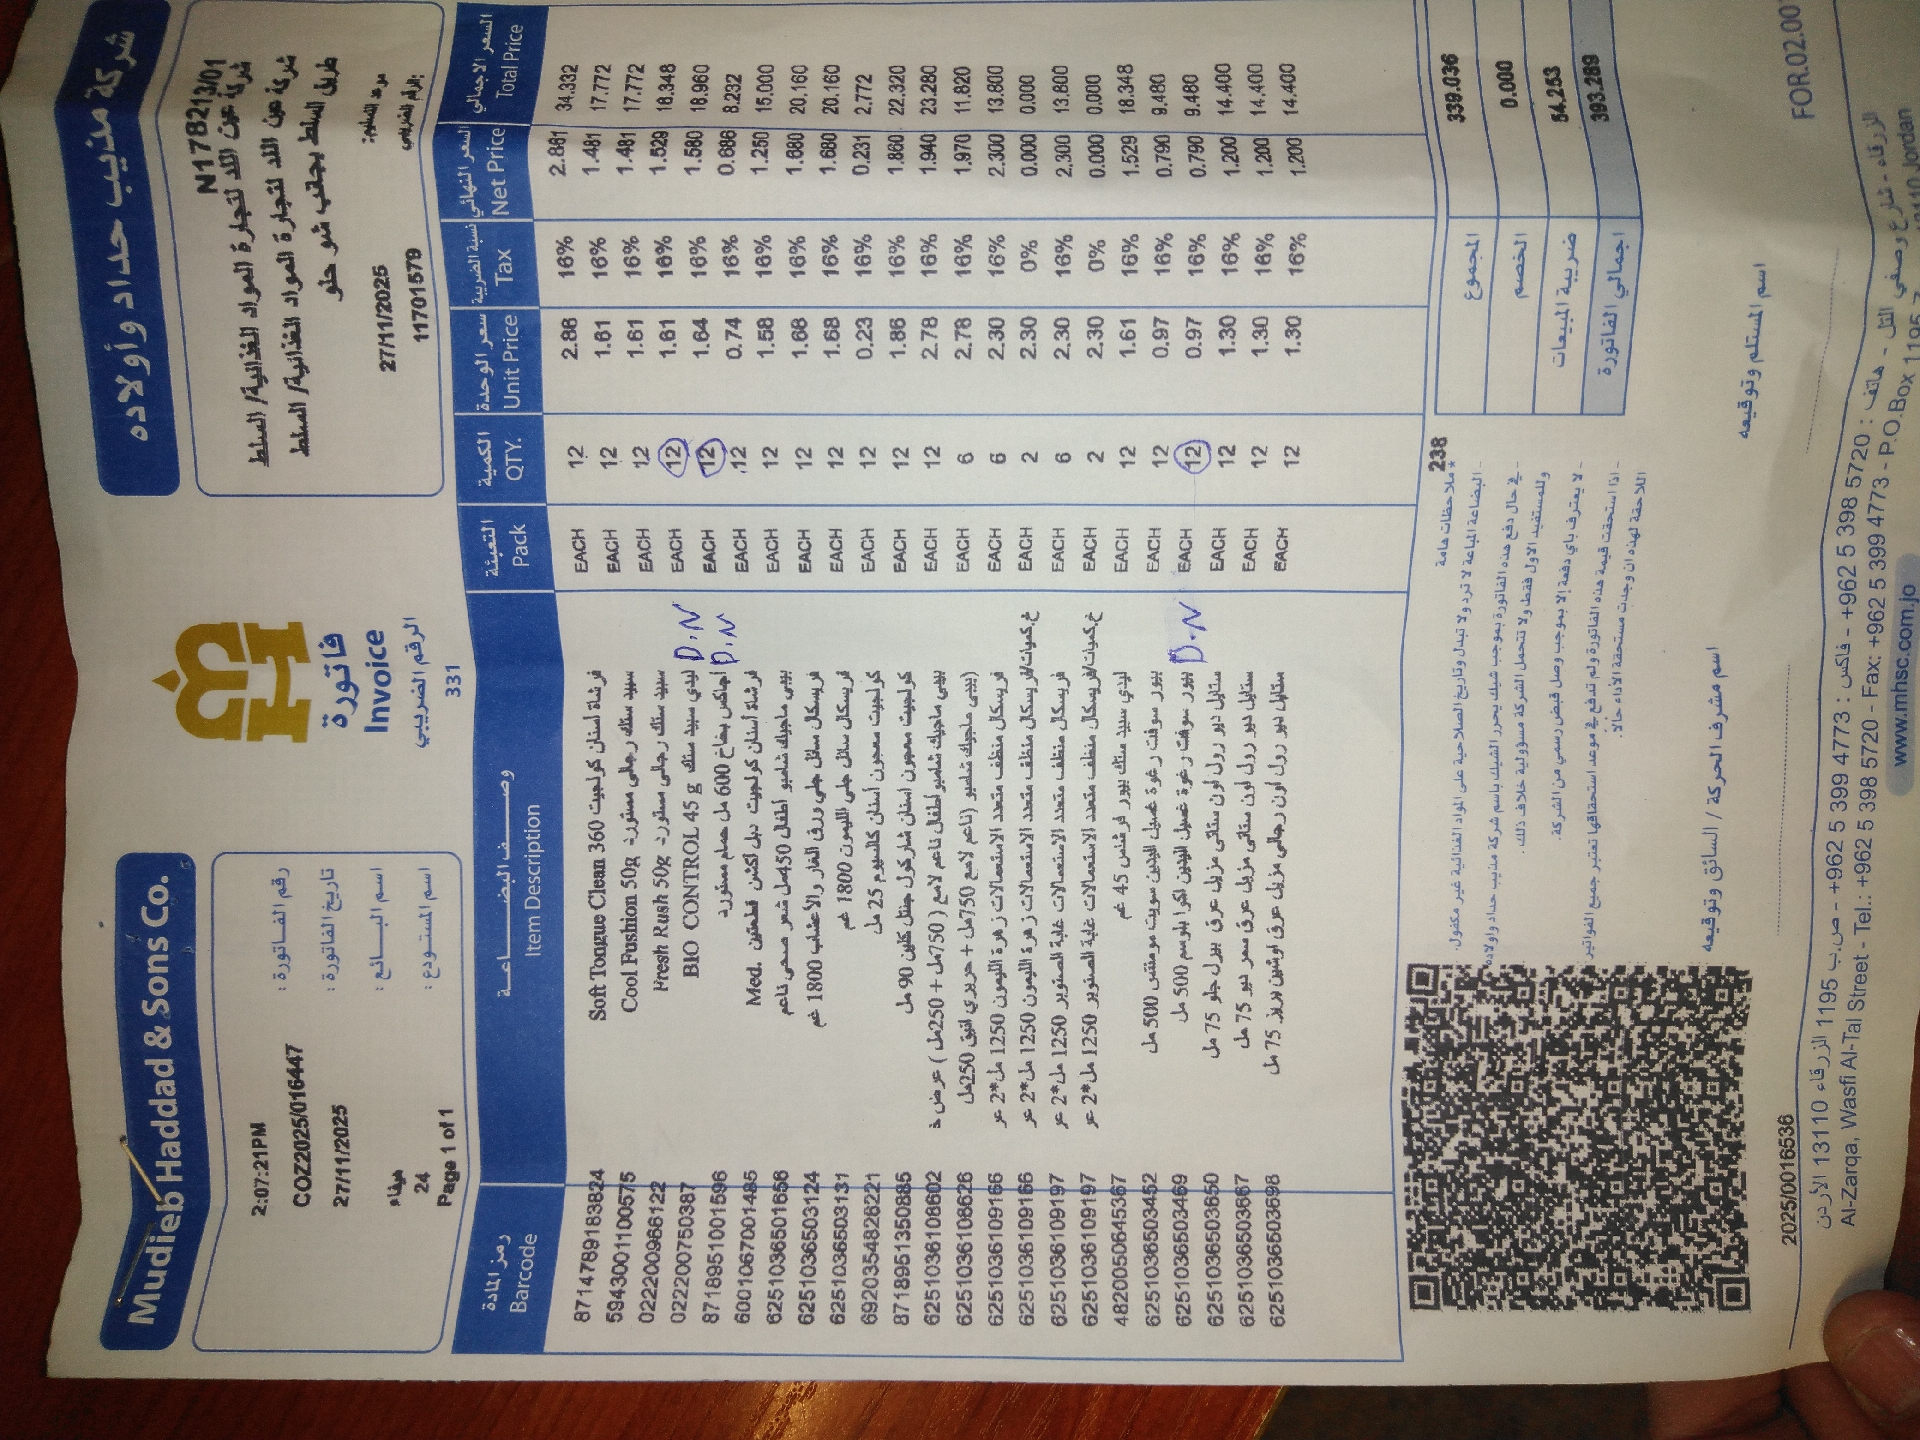 Mudieb Haddad & Sons Co.
شركة مذيب حداد وأولاده
فاتورة
Invoice
الرقم الضريبي
331
2:07:21PM
رقم الفاتورة : COZ2025/016447
تاريخ الفاتورة : 27/11/2025
اسم البائع : هيفاء
اسم المستودع : 24
Page 1 of 1
N178213/01
شركة عين اللد لتجارة المواد الغذائية/ السلط
شركة عين اللد لتجارة المواد الغذائية/ السلط
طريق السلط بجانب شو حلو
27/11/2025
الرقم الضريبي: 11701579
رمز المادة وصف البضاعة التعبئة الكمية سعر الوحدة نسبة الضريبة السعر النهائي السعر الاجمالي
Barcode Item Description Pack QTY. Unit Price Tax Net Price Total Price
8714789183824 فرشاة أسنان كولجيت 360 Soft Tongue Clean EACH 12 2.86 16% 2.861 34.332
5943001100575 سبيد ستك رجالي مستورد Cool Fushion 50g EACH 12 1.61 16% 1.481 17.772
022200966122 سبيد ستك رجالي مستورد Fresh Rush 50g EACH 12 1.61 16% 1.481 17.772
022200750387 ليدي سبيد ستك BIO CONTROL 45 g D.N EACH 12 1.61 16% 1.529 18.348
8718951001596 اجاكس بخاخ 600 مل حمام مستورد D.N EACH 12 1.64 16% 1.580 18.960
6001067001485 فرشاة أسنان كولجيت دبل اكشن قطعتين Med. EACH 12 0.74 16% 0.686 8.232
6251036501656 بيبي ماجيك شامبو اطفال 450مل شعر صحي ناعم EACH 12 1.58 16% 1.250 15.000
6251036503124 فريسكال سائل جلي ورق الغار والأعشاب 1800 غم EACH 12 1.68 16% 1.680 20.160
6251036503131 فريسكال سائل جلي الليمون 1800 غم EACH 12 1.68 16% 1.680 20.160
6920354826221 كولجيت معجون أسنان كالسيوم 25 مل EACH 12 0.23 16% 0.231 2.772
8718951350885 كولجيت معجون اسنان شاركول جنتل كلين 90 مل EACH 12 1.86 16% 1.860 22.320
6251036108602 بيبي ماجيك شامبو اطفال ناعم لامع ( 750مل + 250مل ) عرض خ EACH 12 2.78 16% 1.940 23.280
6251036108626 (بيبي ماجيك شامبو (ناعم لامع 750مل + حريري انيق 250مل EACH 6 2.78 16% 1.970 11.820
6251036109166 فريسكال منظف متعدد الاستعمالات زهرة الليمون 1250 مل*2 عر EACH 6 2.30 16% 2.300 13.800
6251036109166 خ.كميات/فريسكال منظف متعدد الاستعمالات زهرة الليمون 1250 مل*2 عر EACH 2 2.30 0% 0.000 0.000
6251036109197 فريسكال منظف متعدد الاستعمالات غابة الصنوبر 1250 مل*2 عر EACH 6 2.30 16% 2.300 13.800
6251036109197 خ.كميات/فريسكال منظف متعدد الاستعمالات غابة الصنوبر 1250 مل*2 عر EACH 2 2.30 0% 0.000 0.000
4820050645367 ليدي سبيد ستك بيور فرشنس 45 غم EACH 12 1.61 16% 1.529 18.348
6251036503452 بيور سوفت رغوة غسيل اليدين سويت مومنتس 500 مل EACH 12 0.97 16% 0.790 9.480
6251036503469 بيور سوفت رغوة غسيل اليدين اكوا بلوسم 500 مل D.N EACH 12 0.97 16% 0.790 9.480
6251036503650 ستايل ديو رول اون ستاتي مزيل عرق بيرل جلو 75 مل EACH 12 1.30 16% 1.200 14.400
6251036503667 ستايل ديو رول اون ستاتي مزيل عرق سمر ديو 75 مل EACH 12 1.30 16% 1.200 14.400
6251036503698 ستايل ديو رول اون رجالي مزيل عرق اوشين بريز 75 مل EACH 12 1.30 16% 1.200 14.400
238
المجموع 339.036
الخصم 0.000
ضريبة المبيعات 54.253
اجمالي الفاتورة 393.289
*ملاحظات هامة
- البضاعة المباعة لا ترد ولا تبدل وتاريخ الصلاحية على المواد الغذائية غير مكفول.
- في حال دفع هذه الفاتورة بموجب شيك يحرر الشيك باسم شركة مذيب حداد واولاده
وللمستفيد الاول فقط ولا تتحمل الشركة مسؤولية خلاف ذلك.
- لا يعترف بأي دفعة إلا بموجب وصل قبض رسمي من الشركة.
- اذا استحقت قيمة هذه الفاتورة ولم تدفع في موعد استحقاقها تعتبر جميع الفواتير
اللاحقة لهذه ان وجدت مستحقة الأداء حالا.
اسم مشرف الحركة / السائق وتوقيعه
اسم المستلم وتوقيعه
2025/0016536
FOR.02.00
الزرقاء - شارع وصفي التل - هاتف : 5720 398 5 962+ - فاكس : 4773 399 5 962+ - ص.ب 1195 الزرقاء 13110 الأردن
Al-Zarqa, Wasfi Al-Tal Street - Tel.: +962 5 398 5720 - Fax: +962 5 399 4773 - P.O.Box 1195 Jordan
www.mhsc.com.jo